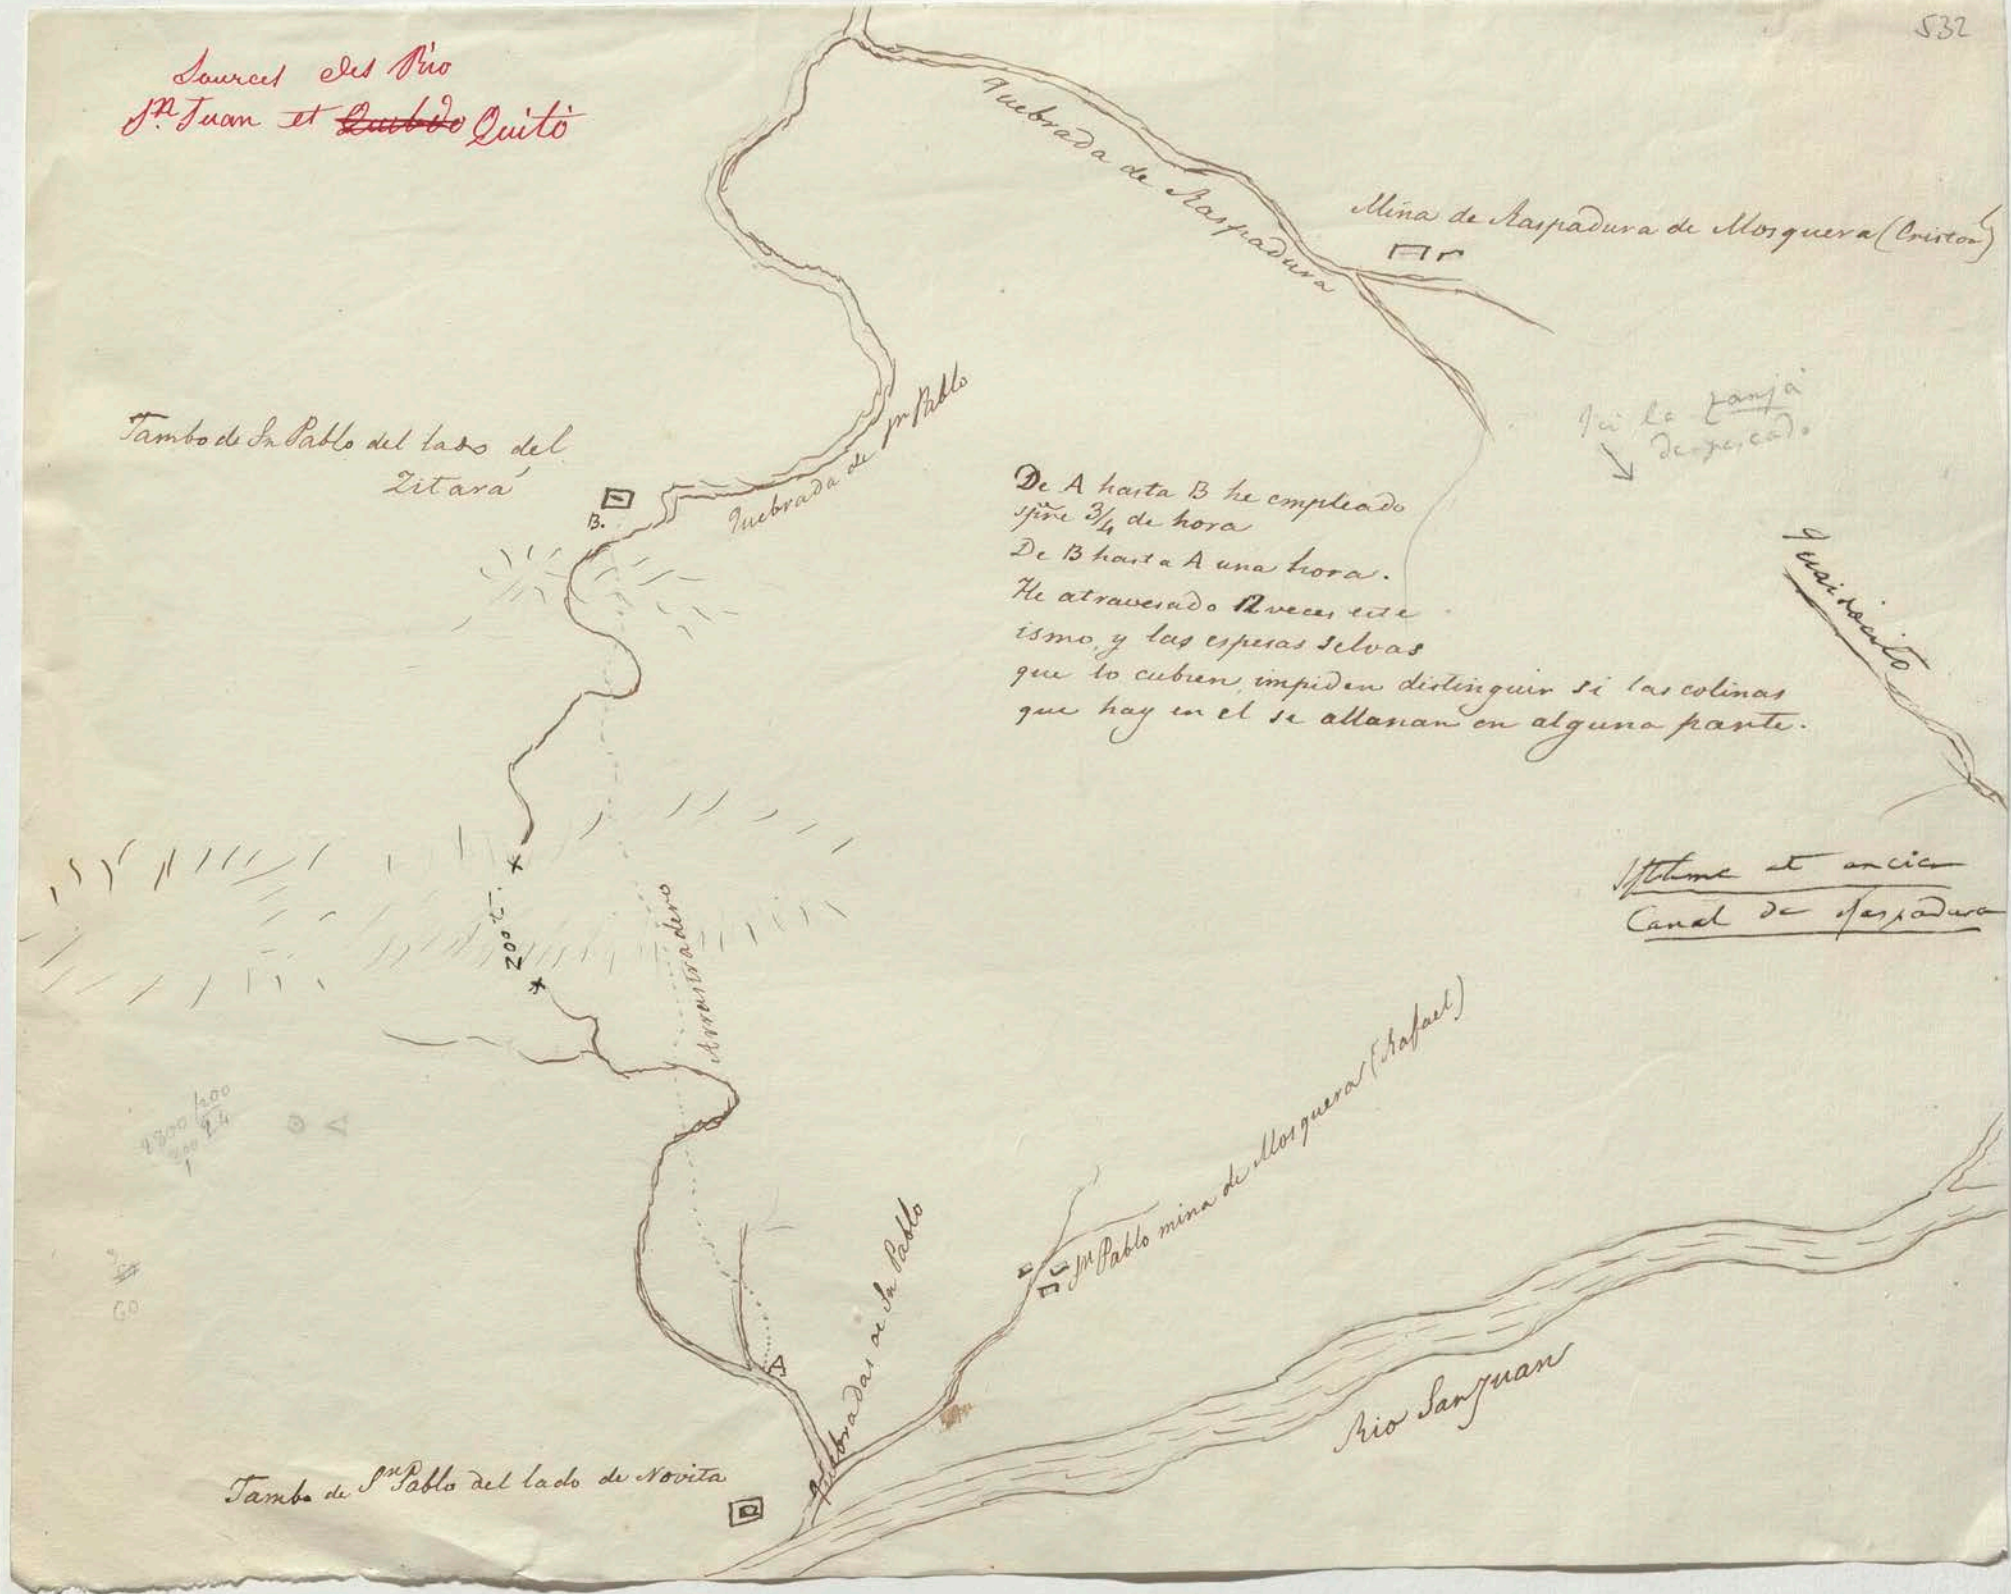 532
Sources des Rio
Sn. Juan et Quibdo Quitò
Quebrada de Raspadura
Mina de Raspadura de Mosquera (Cristoal)
Tambo de Sn Pablo del lado del
Zitará
B.
Quebrada de Sn Pablo
la zanja
De A hasta B he empleado
spre 3/4 de hora
De B hasta A una hora.
He atravesado 12 veces este
ismo, y las espesas selvas
que lo cubren, impiden distinguir si las colinas
que hay en el se allanan en alguna parte.
200 t.
Arrastradero
Isthme et ancien
Canal de Raspadura
2800/200
60
Sn Pablo mina de Mosquera (Rafael)
Quebradas de Sn Pablo
A
Rio San Juan
Tambo de Sn Pablo del lado de Novita